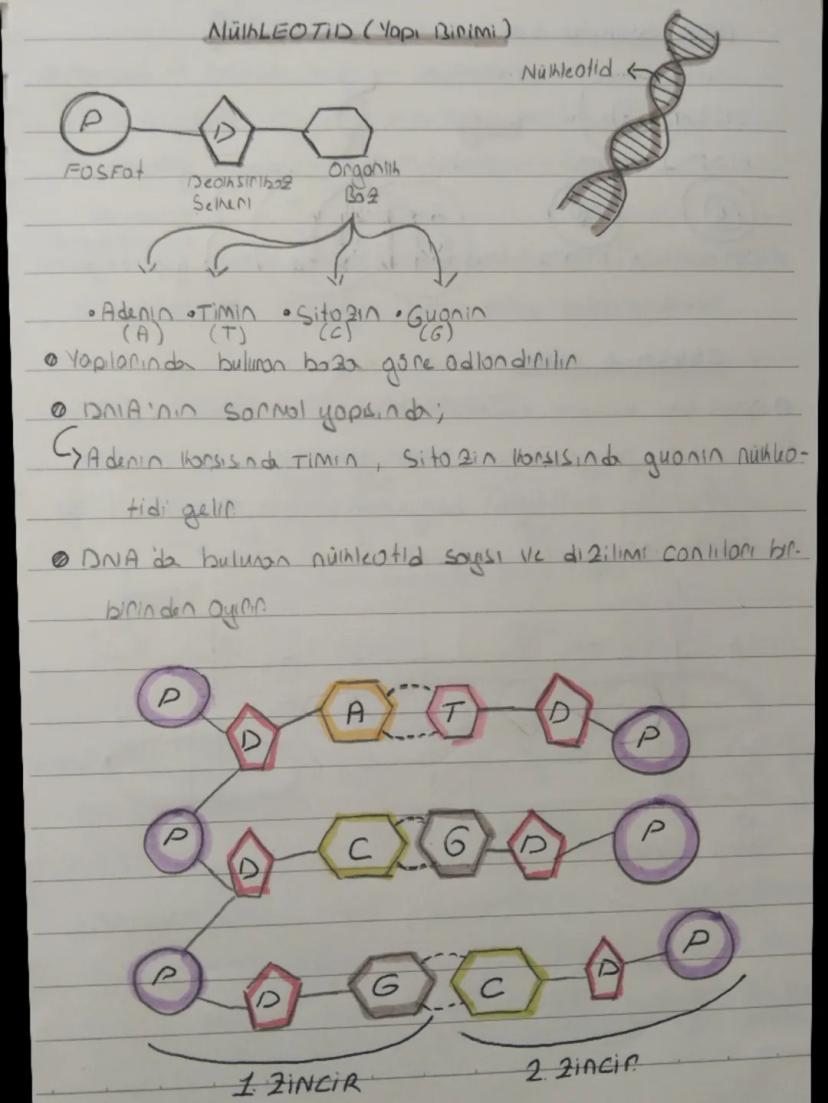 NÜKLEOTİD (Yapı Birimi)
Nükleotid
P D
FOSFat Deoksiriboz Organik
Şekeri Baz
• Adenin • Timin • Sitozin • Guanin
(A) (T) (C) (G)
Yapılarında bulunan baza göre adlandırılır
DNA'nın sarmal yapısında;
Adenin karşısında Timin, Sitozin karşısında guanin nükleo-
tidi gelir
DNA'da bulunan nükleotid sayısı ve dizilimi canlıları bir-
birinden ayırır.
P D A T D P
P D C G D P
P D G C D P
1. ZİNCİR 2. Zincir